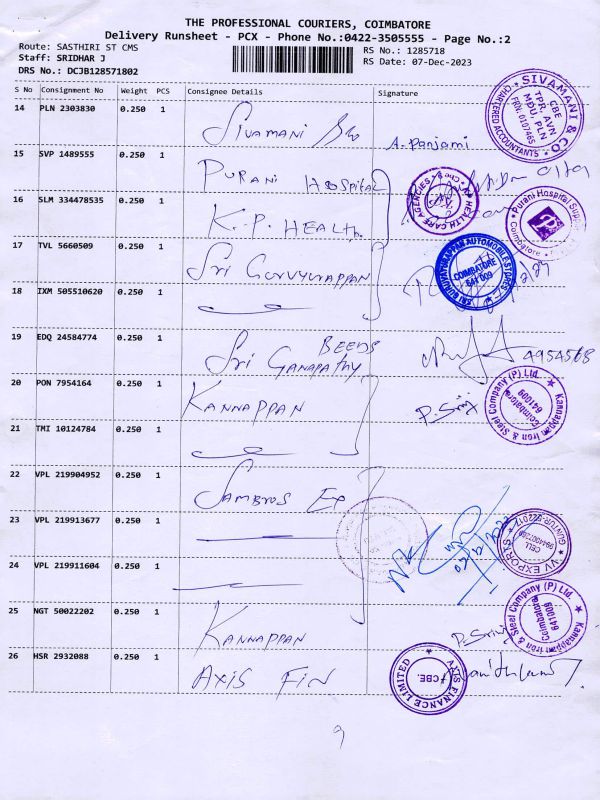 THE PROFESSIONAL COURIERS, COIMBATORE
Delivery Runsheet - PCX - Phone No.:0422-3505555 - Page No.:2
Route: SASTHIRI ST CMS
RS No.: 1285718
Staff: SRIDHAR J
RS Date: 07-Dec-2023
DRS No.: DCJB128571802
S No Consignment No Weight PCS Consignee Details Signature
14 PLN 2303830 0.250 1 Sivamani &co A. Panjami
SIVAMANI & CO CHARTERED ACCOUNTANTS CBE TPR, AVN MDU, PLN FRN: 010746S
15 SVP 1489555 0.250 1 PURANI HOSPITAL
16 SLM 334478535 0.250 1 K.P. HEALTH
HEALTH CARE AGENCIES
Purani Hospital Coimbatore
17 TVL 5660509 0.250 1 Sri GURUVYURAPPAN
SRI GURUVAYURAPPAN AUTOMOBILE STORES COIMBATORE 641 009
18 IXM 505510620 0.250 1
19 EDQ 24584774 0.250 1 Sri GANAPATHY BEEDS 4954568
20 PON 7954164 0.250 1 KANNAPPAN
Kannappan Iron & Steel Company (P) Ltd. Coimbatore 641009
21 TMI 10124784 0.250 1
22 VPL 219904952 0.250 1 SAMBROS EXP
23 VPL 219913677 0.250 1
NV EXPORTS CELL
24 VPL 219911604 0.250 1
25 NGT 50022202 0.250 1 KANNAPPAN
Kannappan Iron & Steel Company (P) Ltd. Coimbatore 641009
26 HSR 2932088 0.250 1 AXIS FIN
AXIS FINANCE LIMITED CBE.
9